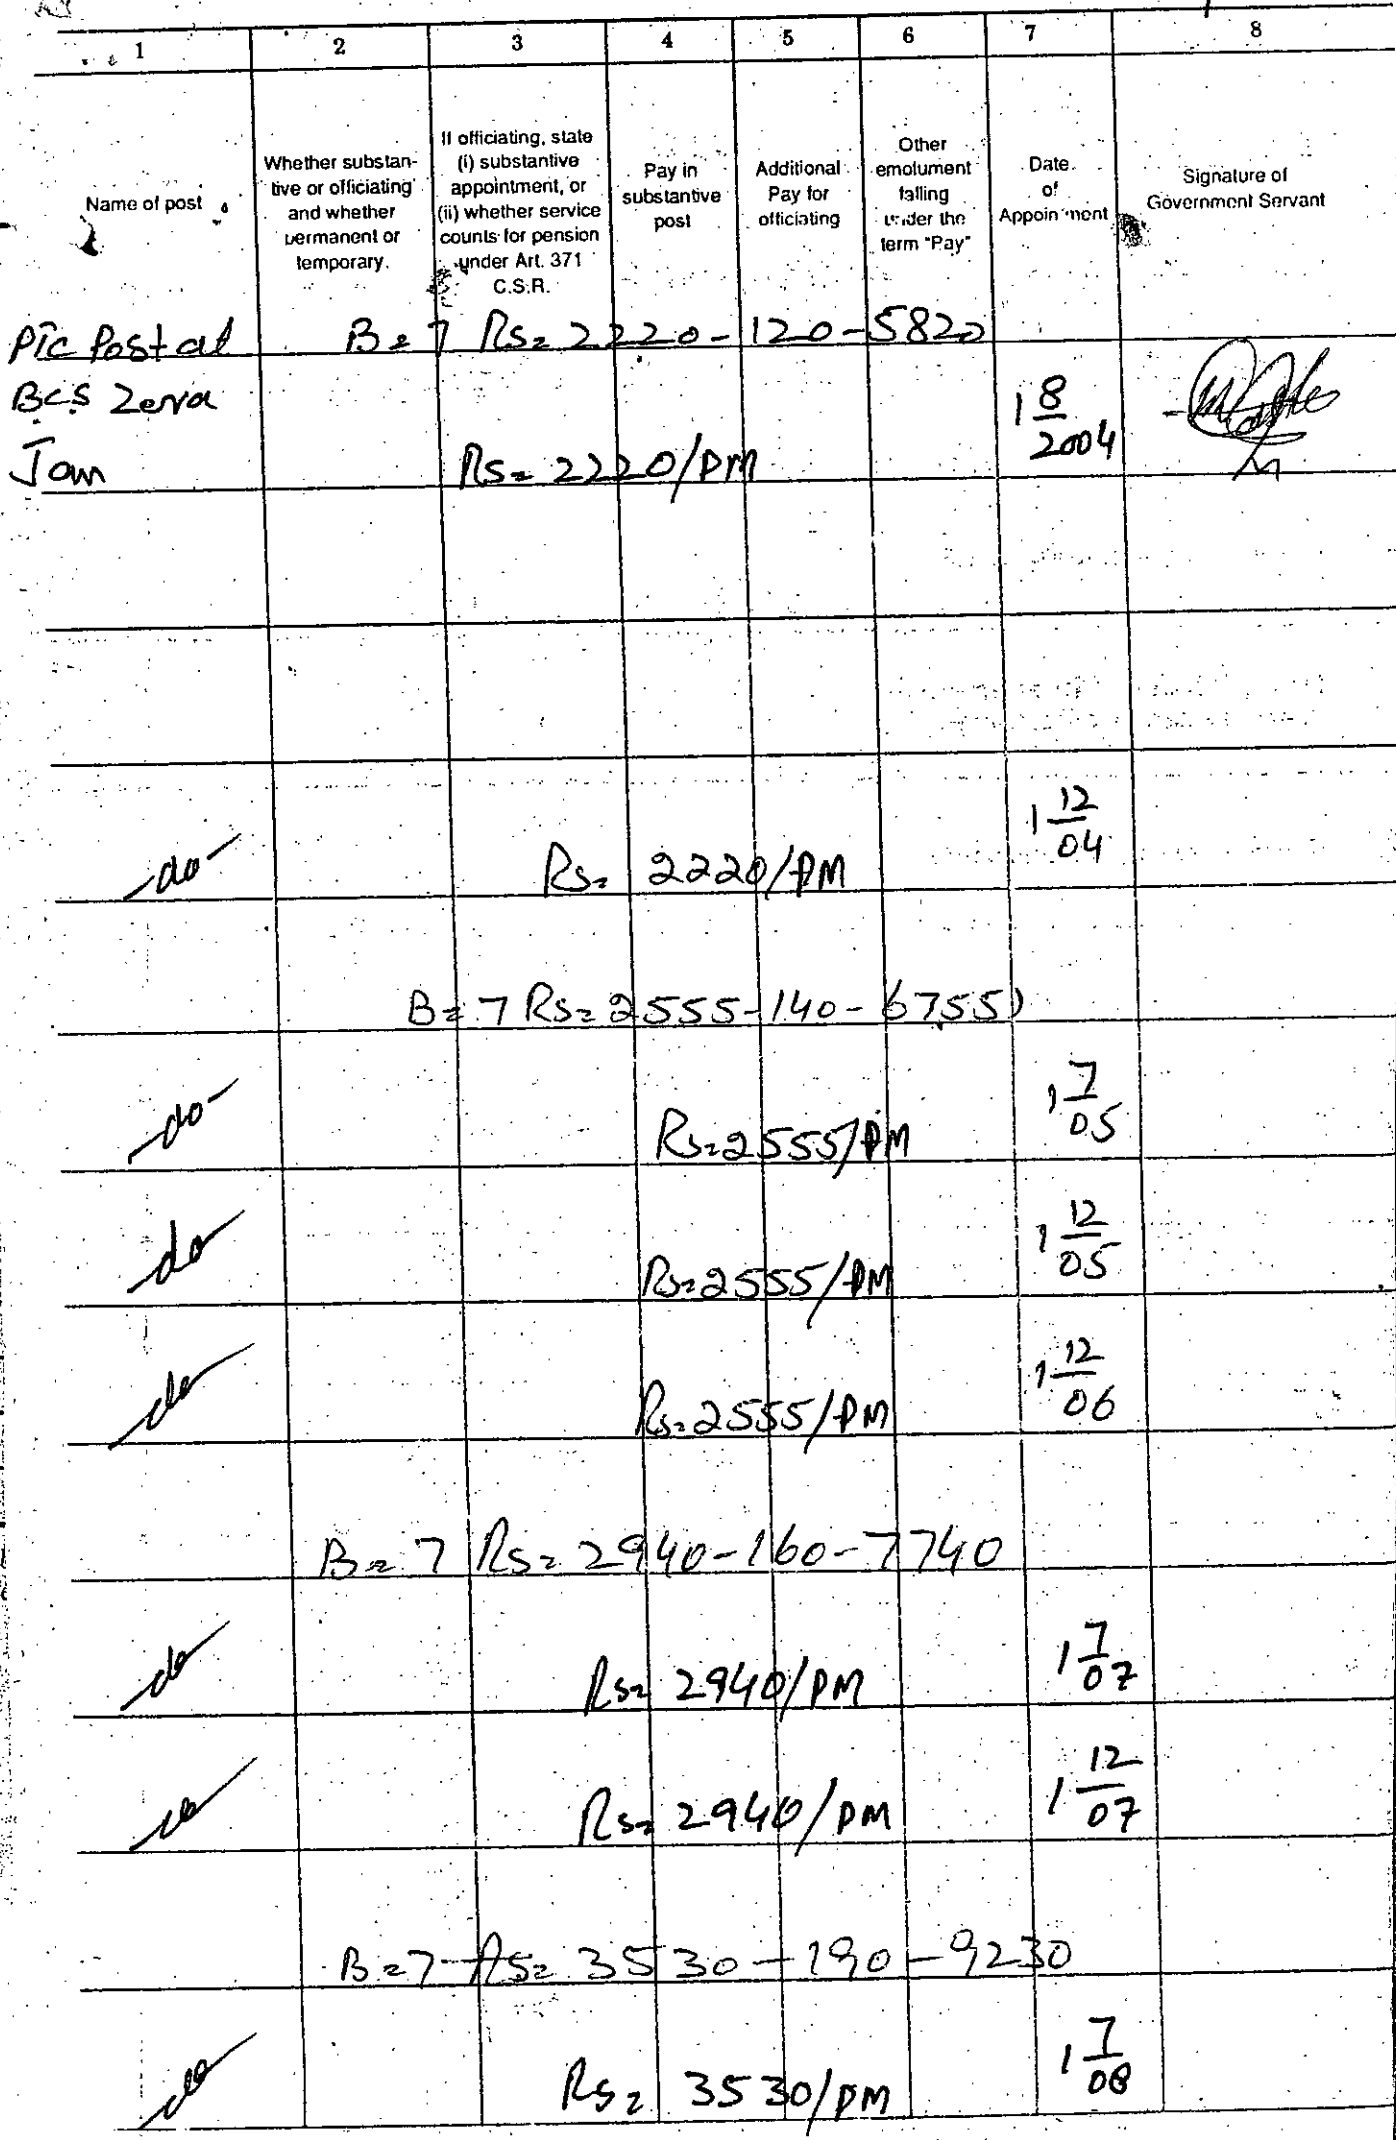 1 2 3 4 5 6 7 8
Name of post
Whether substan-
tive or officiating
and whether
permanent or
temporary.
If officiating, state
(i) substantive
appointment, or
(ii) whether service
counts for pension
under Art. 371
C.S.R.
Pay in
substantive
post
Additional
Pay for
officiating
Other
emolument
falling
under the
term "Pay"
Date
of
Appointment
Signature of
Government Servant
B=7 Rs=2220-120-5820
Pic Postal
BCS Zena
Jam
Rs=2220/PM
1 8/2004
-do-
Rs= 2220/PM
1 12/04
B=7 Rs=2555-140-6755)
-do-
Rs=2555/PM
1 7/05
do
Rs=2555/PM
1 12/05
do
Rs=2555/PM
1 12/06
B=7 Rs=2940-160-7740
do
Rs= 2940/PM
1 7/07
do
Rs= 2940/PM
1 12/07
B=7-Rs= 3530-190-9230
do
Rs= 3530/PM
1 7/08